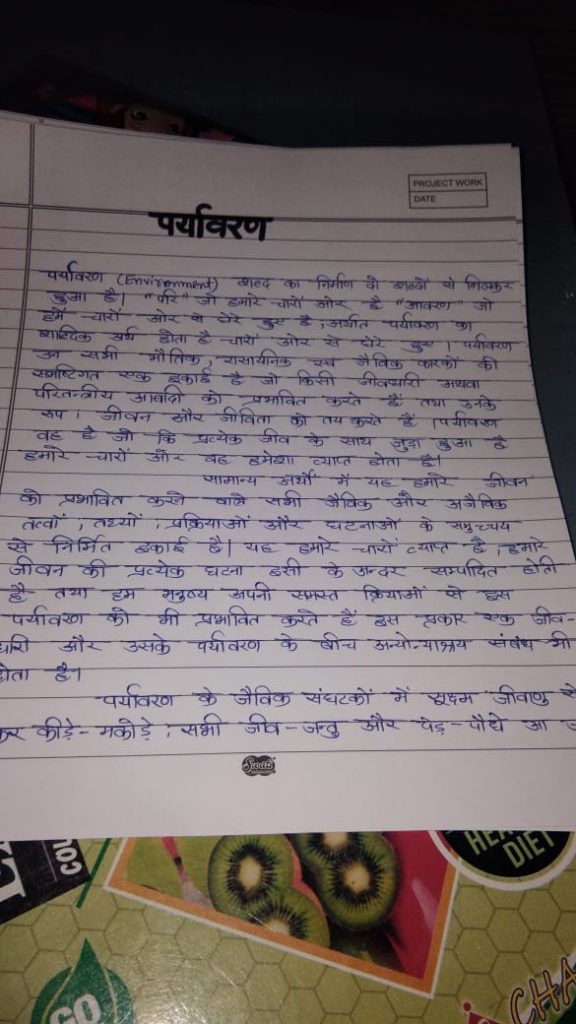 PROJECT WORK
DATE
पर्यावरण
पर्यावरण (Environment) शब्द का निर्माण दो शब्दों से मिलकर
हुआ है। "परि" जो हमारे चारों ओर है "आवरण" जो
हमें चारों ओर से घेरे हुए है, अर्थात पर्यावरण का
शाब्दिक अर्थ होता है चारों ओर से घेरे हुए। पर्यावरण
उन सभी भौतिक, रासायनिक एवं जैविक कारकों की
समष्टिगत एक इकाई है जो किसी जीवधारी अथवा
परितन्त्रीय आबादी को प्रभावित करते हैं तथा उनके
रूप, जीवन और जीविता को तय करते हैं। पर्यावरण
वह है जो कि प्रत्येक जीव के साथ जुड़ा हुआ है
हमारे चारों और वह हमेशा व्याप्त होता है।
सामान्य अर्थों में यह हमारे जीवन
को प्रभावित करने वाले सभी जैविक और अजैविक
तत्वों, तथ्यों, प्रक्रियाओं और घटनाओं के समुच्चय
से निर्मित इकाई है। यह हमारे चारों व्याप्त है, हमारे
जीवन की प्रत्येक घटना इसी के अन्दर सम्पादित होती
है तथा हम मनुष्य अपनी समस्त क्रियाओं से इस
पर्यावरण को भी प्रभावित करते हैं इस प्रकार एक जीव-
धारी और उसके पर्यावरण के बीच अन्योन्याश्रय संबंध भी
होता है।
पर्यावरण के जैविक संघटकों में सूक्ष्म जीवाणु से
कर कीड़े-मकोड़े, सभी जीव-जन्तु और पेड़-पौधे आ
Swati
DIET
GO
CHA